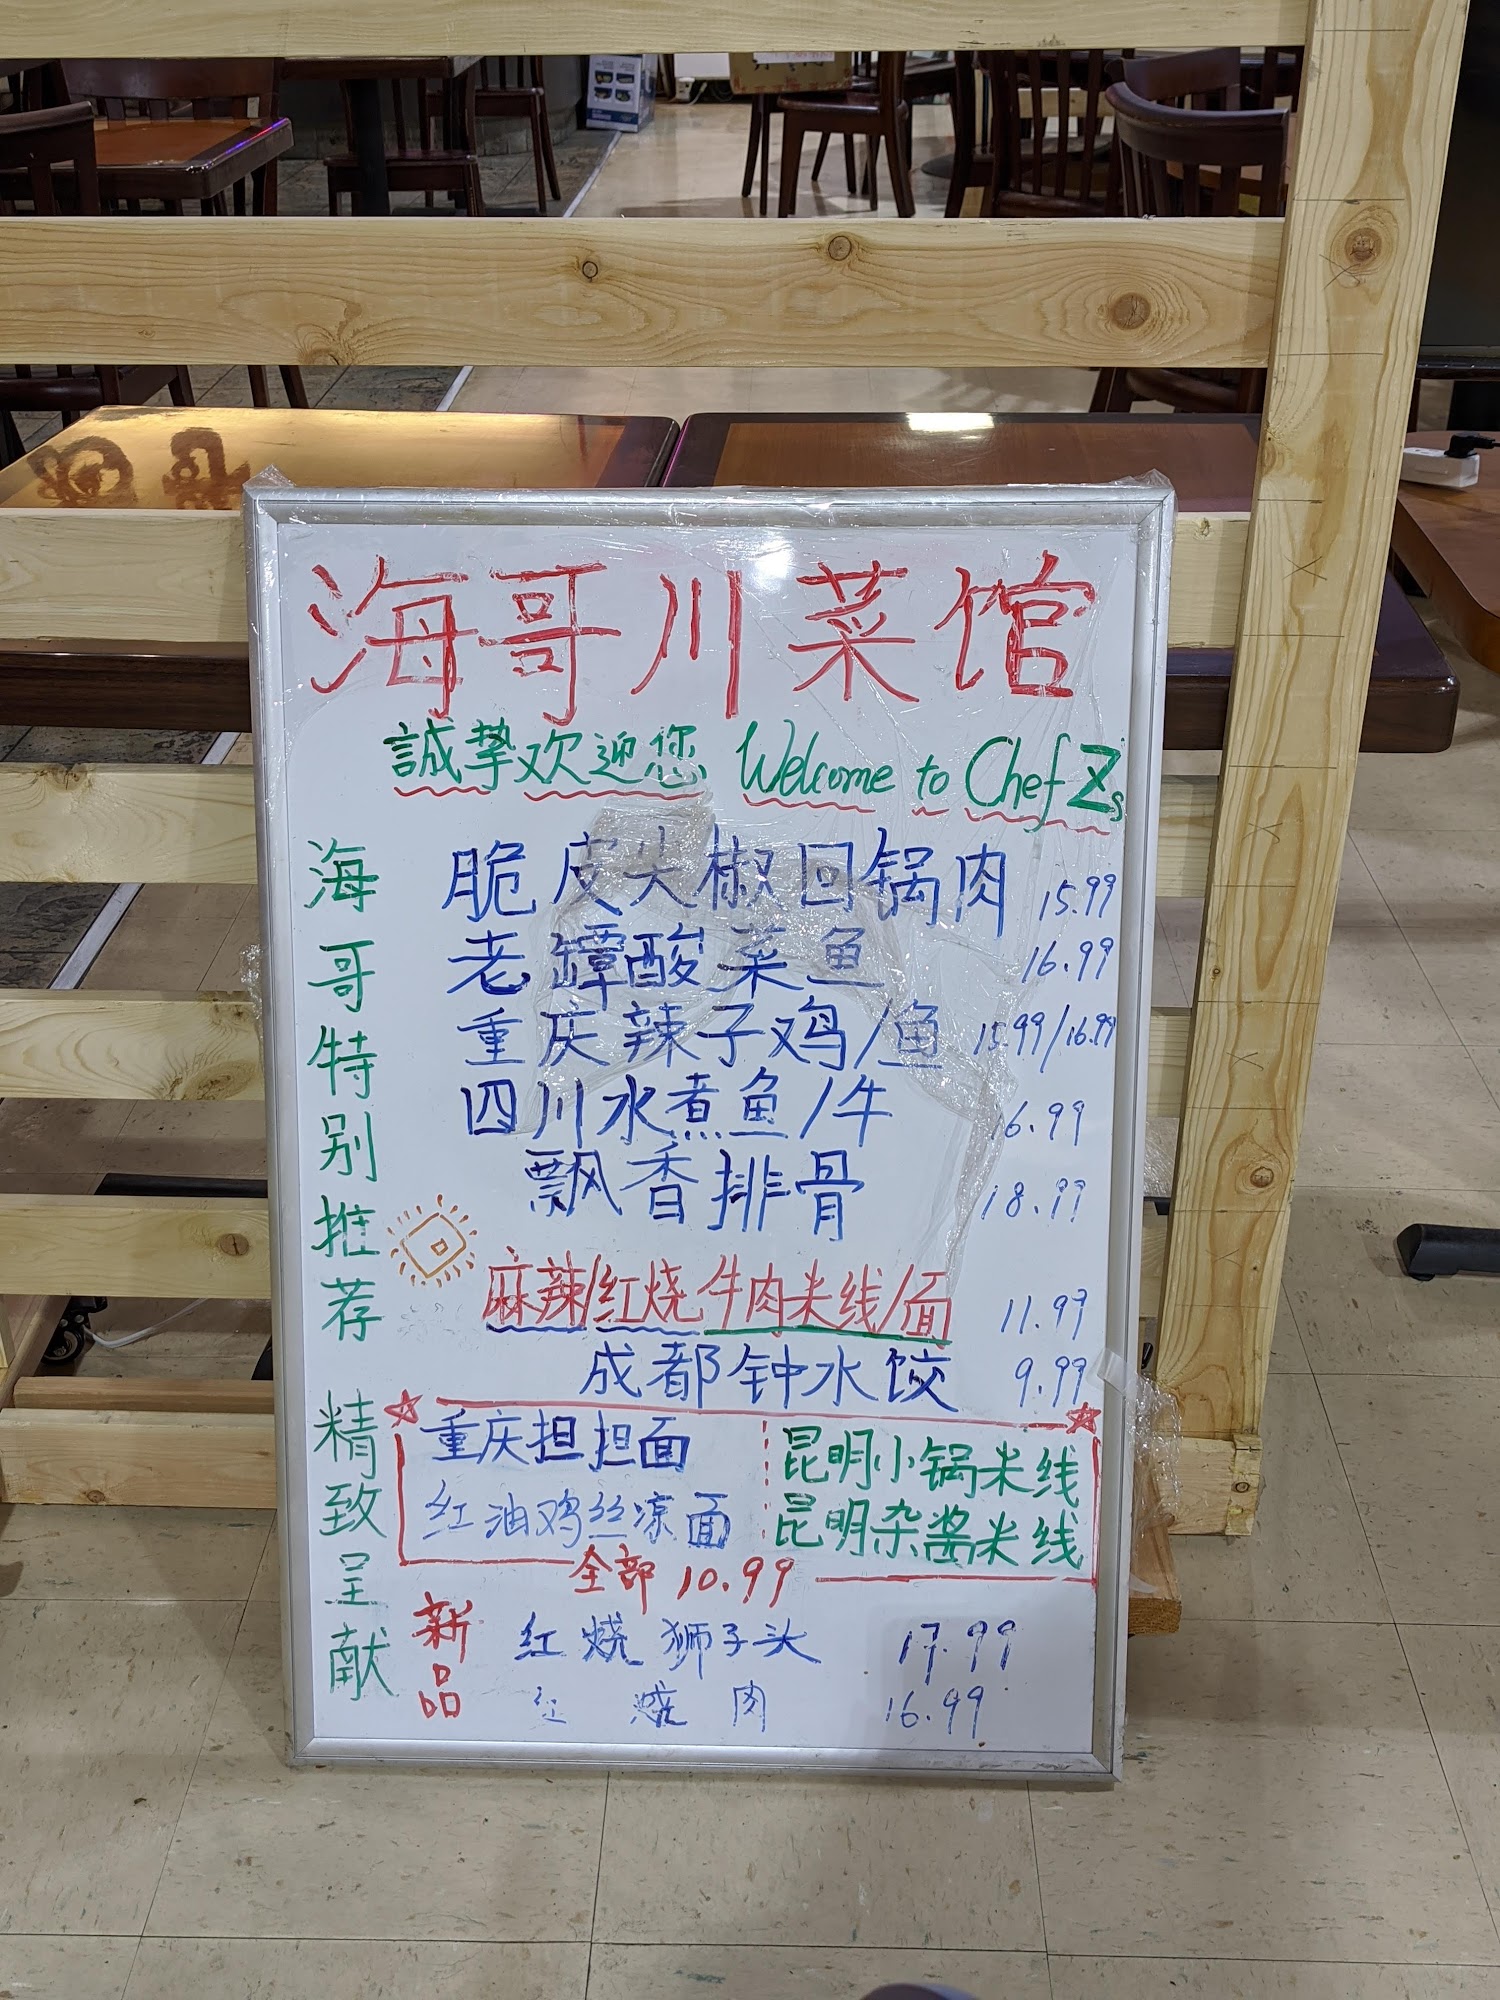 海哥川菜馆
誠挚欢迎您 Welcome to Chef Zs
海哥特别推荐
精致呈献
脆皮尖椒回锅肉 15.99
老罈酸菜鱼 16.99
重庆辣子鸡/鱼 15.99/16.99
四川水煮鱼/牛 16.99
飘香排骨 18.99
麻辣/红烧牛肉米线/面 11.99
成都钟水饺 9.99
重庆担担面
红油鸡丝凉面
昆明小锅米线
昆明杂酱米线
全部 10.99
新品
红烧狮子头 17.99
红烧肉 16.99